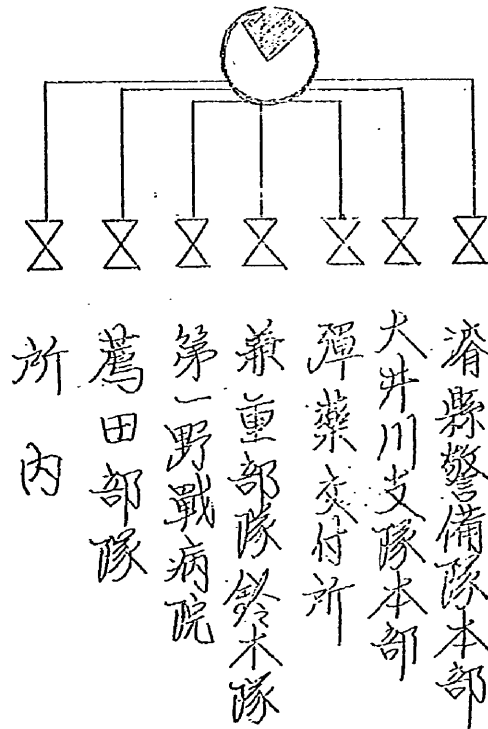 濬縣警備隊本部
大井川支隊本部
彈藥交付所
兼重部隊鈴木隊
第一野戰病院
鷹田部隊
所内